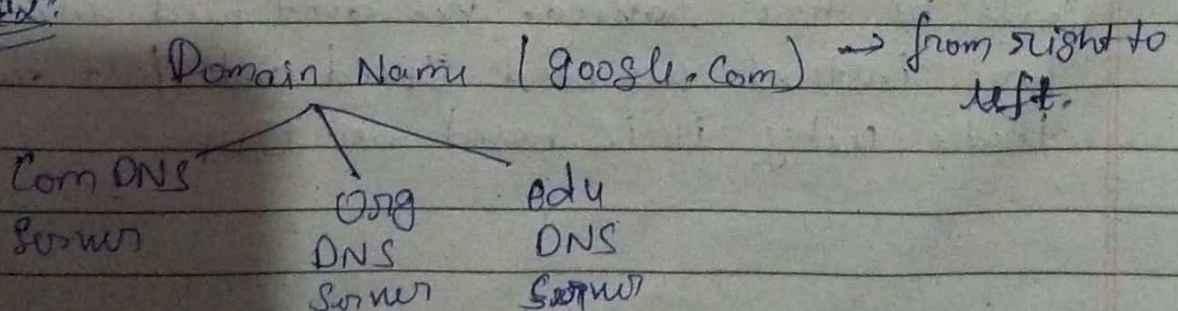 Domain Name (google.com) → from right to
left.
Com DNS
Server
Org
DNS
Server
edu
DNS
Server